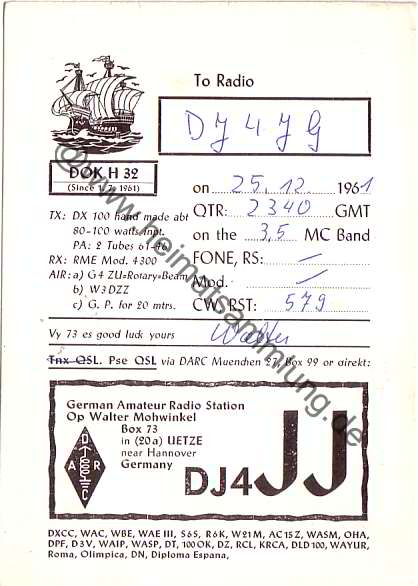 To Radio
DJ4JG
DOK H 32
(Since 1. 7. 1961)
on 25. 12. 1961
QTR: 2340 GMT
on the 3,5 MC Band
FONE, RS: —
Mod. —
CW, RST: 579
TX: DX 100 hand made abt
80-100 watts inpt.
PA: 2 Tubes 61-46
RX: RME Mod. 4300
AIR: a) G4 ZU=Rotary=Beam
b) W3DZZ
c) G. P. for 20 mtrs.
Vy 73 es good luck yours Walter
Tnx QSL. Pse QSL via DARC Muenchen 27, Box 99 or direkt:
German Amateur Radio Station
Op Walter Mohwinkel
Box 73
in (20a) UETZE
near Hannover
Germany
DARC
DJ4JJ
DXCC, WAC, WBE, WAE III, S6S, R6K, W21M, AC15Z, WASM, OHA,
DPF, D3V, WAIP, WASP, DT, 100 OK, DZ, RCL, KRCA, DLD 100, WAYUR,
Roma, Olimpica, DN, Diploma Espana,
© www.heimatsammlung.de